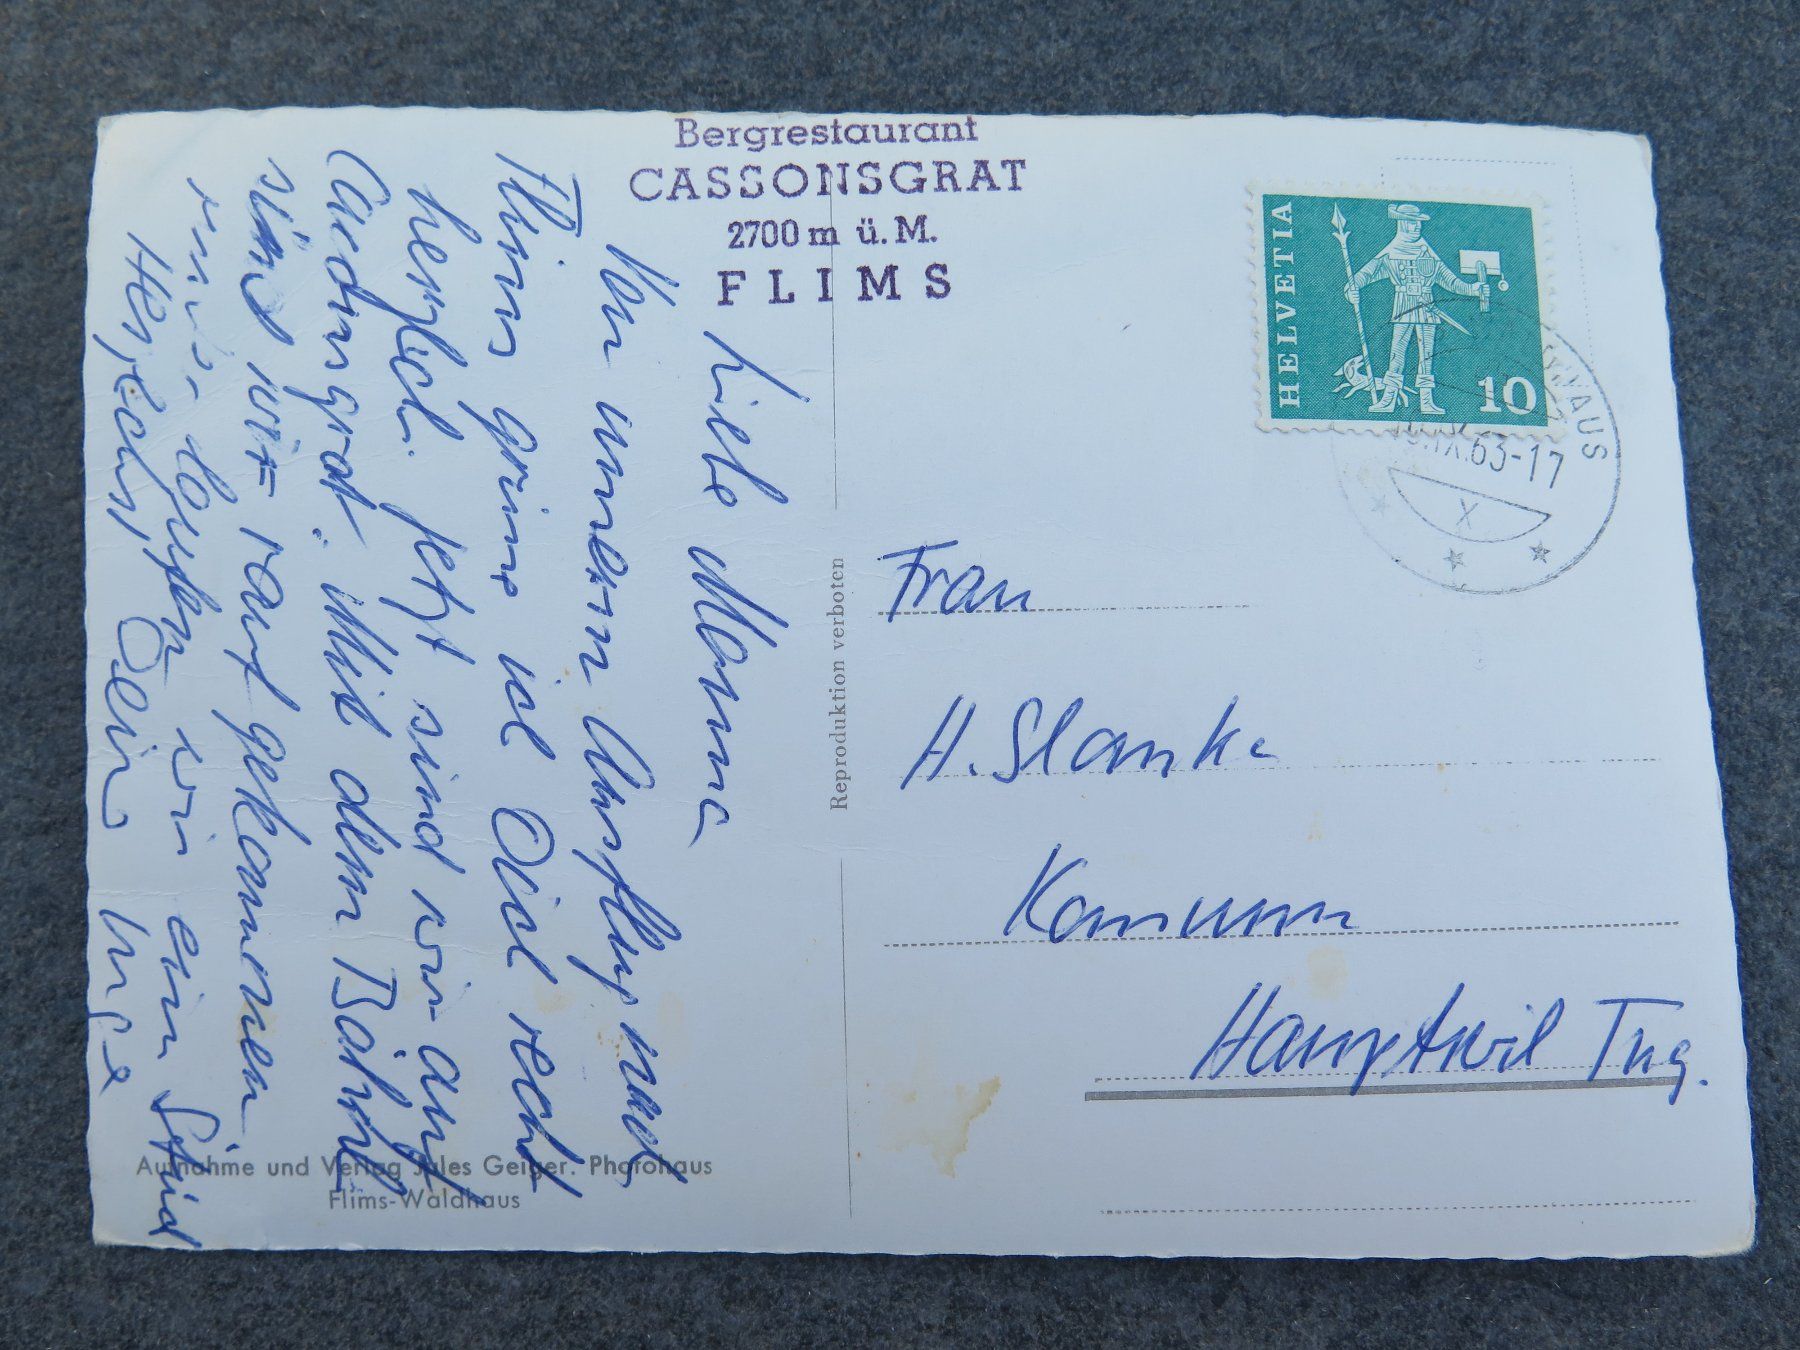 Bergrestaurant
CASSONSGRAT
2700 m ü. M.
FLIMS
Liebe Mama
Von unserm Ausflug nach
Flims grüsse ich Dich recht
herzlich. Jetzt sind wir auf
Cassonsgrat. Mit dem Bähnli
sind wir rauf gekommen
runter laufen wir ein Stück
Herzlich, Dein Inge
Aufnahme und Verlag Jules Geiger. Photohaus
Flims-Waldhaus
Reproduktion verboten
HELVETIA
10
.IX.63-17
X
Frau
H. Slanke
Hauptwil Thg.